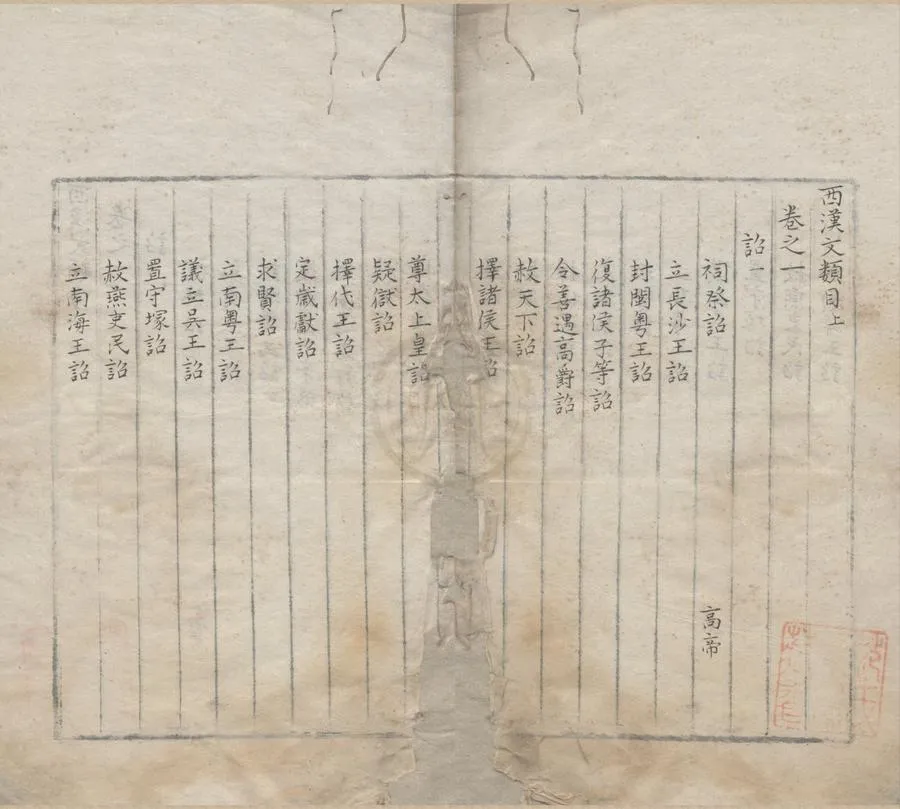 西漢文類目上
卷之一
詔一
祠祭詔 高帝
立長沙王詔
封閩粤王詔
復諸侯子等詔
令善遇高爵詔
赦天下詔
擇諸侯王詔
尊太上皇詔
疑獄詔
擇代王詔
定歲獻詔
求賢詔
立南粤王詔
議立吳王詔
置守塚詔
赦燕吏民詔
立南海王詔